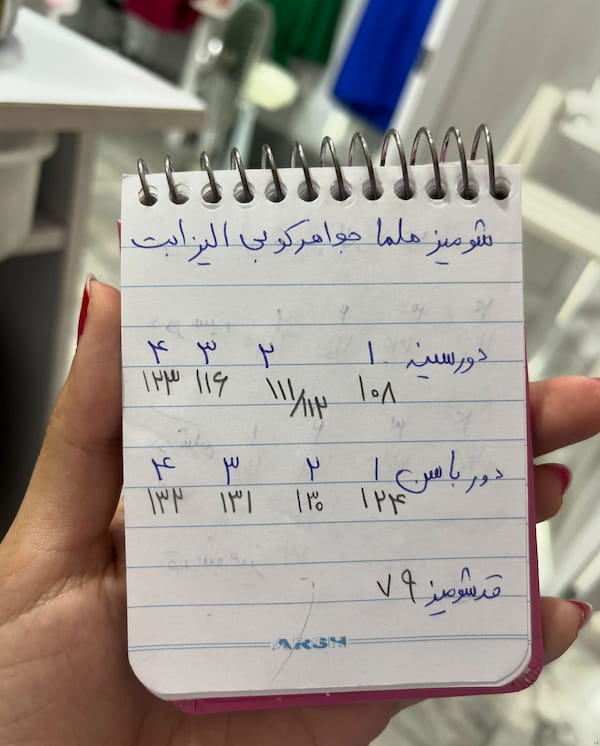 شومیز ململ جواهرکوبی الیزابت
دورسینه ۱ ۲ ۳ ۴
۱۰۸ ۱۱۱/۱۱۲ ۱۱۶ ۱۲۳
دور باسن ۱ ۲ ۳ ۴
۱۲۴ ۱۳۰ ۱۳۱ ۱۳۲
قد شومیز ۷۹
ARSH